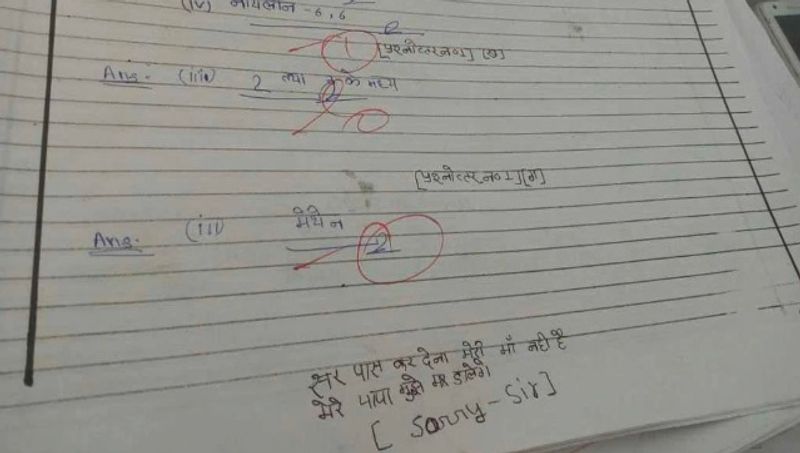 (iv) नायलॉन - 6, 6
1 [प्रश्नोत्तर न० 1] (ख)
Ans. (iii) 2 तथा के मध्य
[प्रश्नोत्तर न० 1] [ग]
Ans. (iii) मेथेन
सर पास कर देना मेरी माँ नहीं है
मेरे पापा मुझे मार डालेंगे
[ Sorry - Sir ]